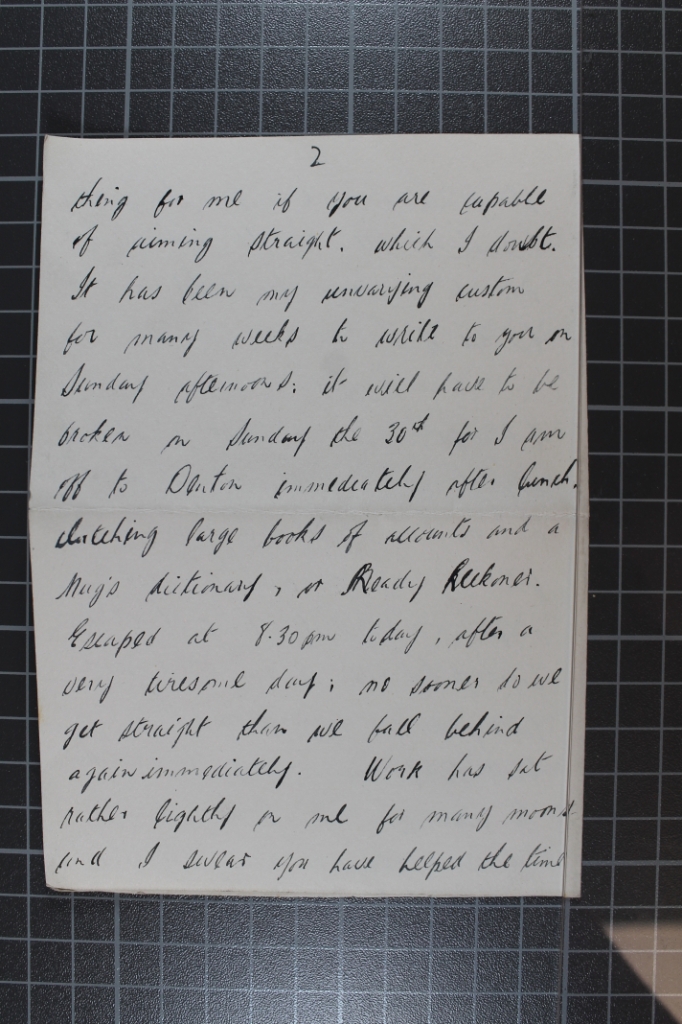 2
thing for me if you are capable
of aiming straight. which I doubt.
It has been my unvarying custom
for many weeks to write to you on
Sunday afternoons: it will have to be
broken on Sunday the 30th for I am
off to Denton immediately after lunch.
clutching large books of accounts and a
Mug's dictionary, or Ready Reckoner.
Escaped at 8.30 pm today, after a
very tiresome day; no sooner do we
get straight than we fall behind
again immediately. Work has sat
rather lightly on me for many moons
and I swear you have helped the time